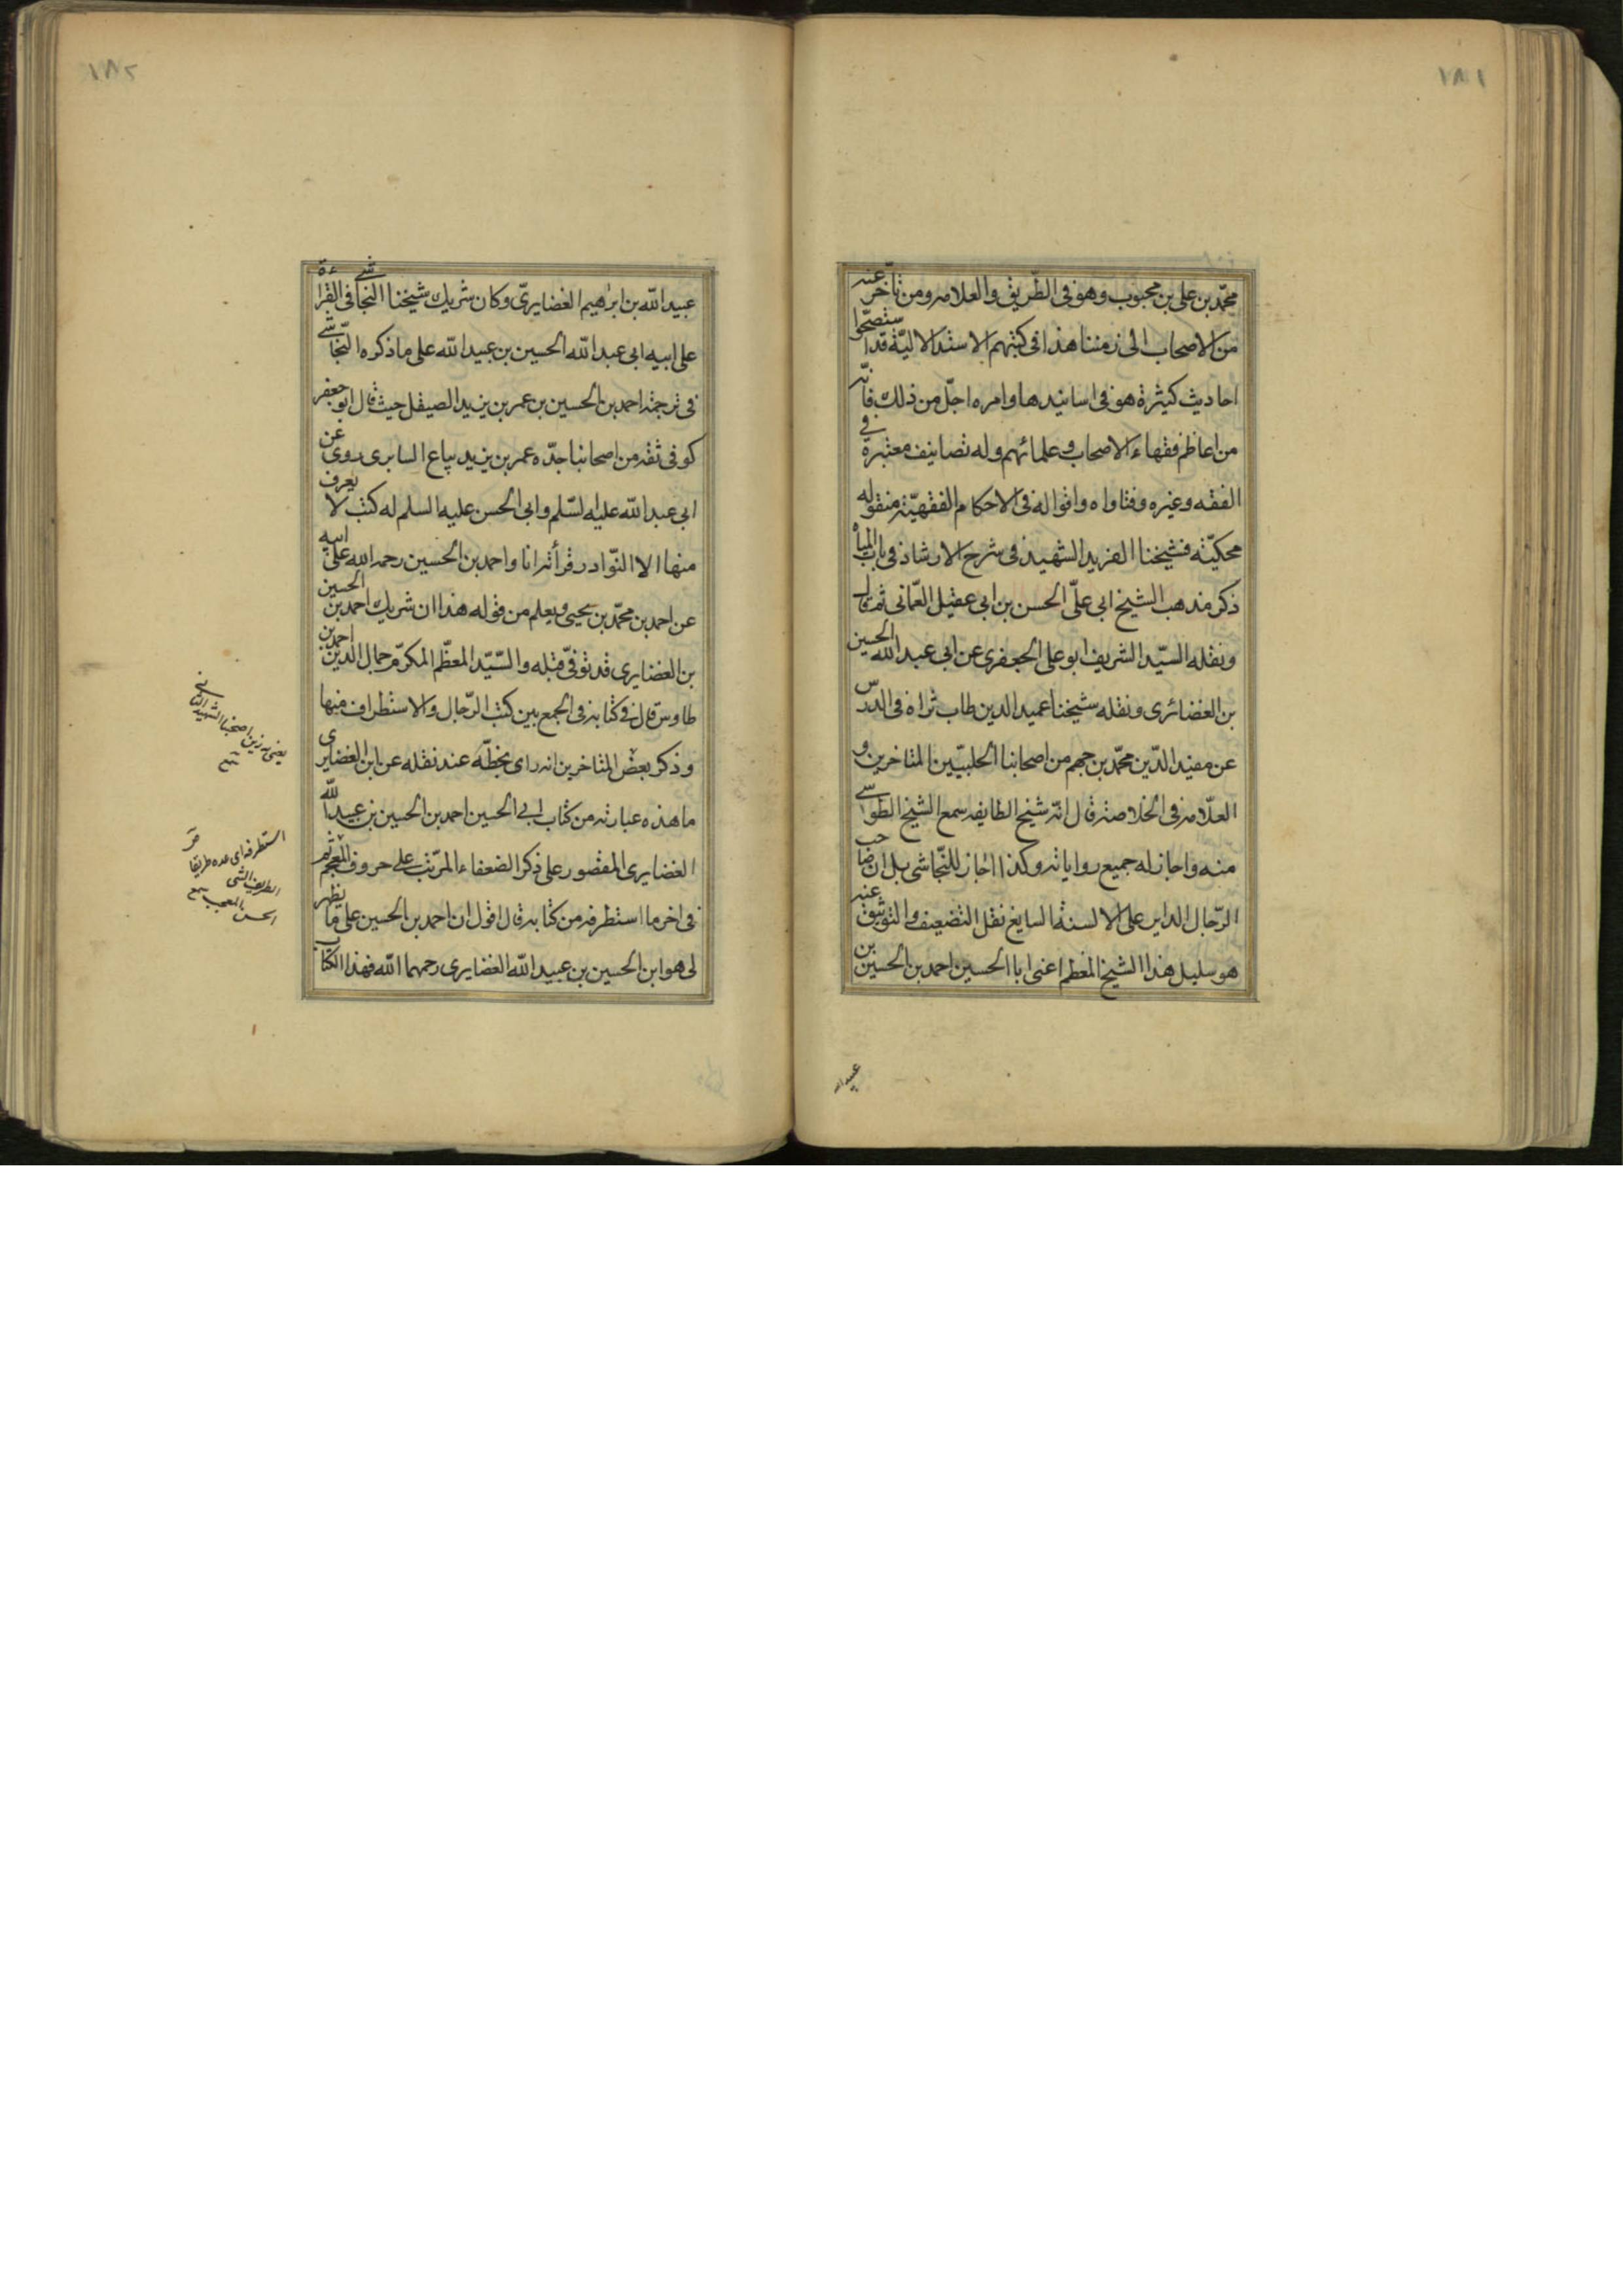 ١٨١
محمّد بن علی بن محبوب وهو فی الطّریق والعلامه ومن تأخّر عنه
من الاصحاب الی زمننا هذا فی کتبهم الاستدلالیّة قد استصحّوا
احادیث کثیرة هو فی اسانیدها وامره اجلّ من ذلك فانّه
من اعاظم فقهاء الاصحاب وعلمائهم وله تصانیف معتبرة فی
الفقه وغیره وفتاواه واقواله فی الاحکام الفقهیّة منقوله
محکیّة فشیخنا الفرید الشهید فی شرح الارشاد فی باب المیاه
ذکر مذهب الشیخ ابی علیّ الحسن بن ابی عقیل العّمانی ثم قال
ونقله السیّد الشریف ابو علی الجعفری عن ابی عبد الله الحسین
بن الغضائری ونقله شیخنا عمید الدین طاب ثراه فی الدرس
عن مفید الدّین محمّد بن جهم من اصحابنا الحلبیّین المتاخرین و
العلّامه فی الخلاصة قال انّه شیخ الطایفه سمع الشیخ الطوسی
منه واجاز له جمیع روایاته وکذا اجاز للنّجاشی بل ان صاحب
الرّجال الدایر علی الالسنة السایغ نقل التضعیف والتوثیق عنه
هو سلیل هذا الشیخ المعظم اعنی ابا الحسین احمد بن الحسین بن
عبید الله
١٨٢
عبید الله بن ابرٰهیم الغضایریّ وکان شریك شیخنا النجاشی فی القراءة
علی ابیه ابی عبد الله الحسین بن عبید الله علی ما ذکره النّجاشی
فی ترجمة احمد بن الحسین بن عمر بن یزید الصیقل حیث قال ابو جعفر
کوفی ثقه من اصحابنا جدّه عمر بن یزید بیاع السابری روی عن
ابی عبد الله علیه السّلم وابی الحسن علیه السلم له کتب لا یعرف
منها الا النّوادر قرأته انا واحمد بن الحسین رحمه الله علی ابیه
عن احمد بن محمّد بن یحیی ویعلم من قوله هذا ان شریك احمد بن الحسین
بن الغضایری قد توفّی قبله والسّیّد المعظّم المکرّم جمال الدین احمد بن
طاوس قال فی کتابه فی الجمع بین کتب الرّجال والاستطراف منها
وذکر بعض المتاخرین انه رای بخطّه عند نقله عن ابن الغضایری
ما هذه عبارته من کتاب ابی الحسین احمد بن الحسین بن عبید الله
الغضایری المقصور علی ذکر الضعفاء المرتّب علی حروف المعجم ثم
فی اخر ما استطرفه من کتابه قال اقول ان احمد بن الحسین علی ما یظهر
لی هو ابن الحسین بن عبید الله الغضایری رحمهما الله فهذا الکتاب
یعنی به زین اصحابنا الشهید الثانی
استطرفه ای عده طریفا
الطریف الشی
الحسن المعجب